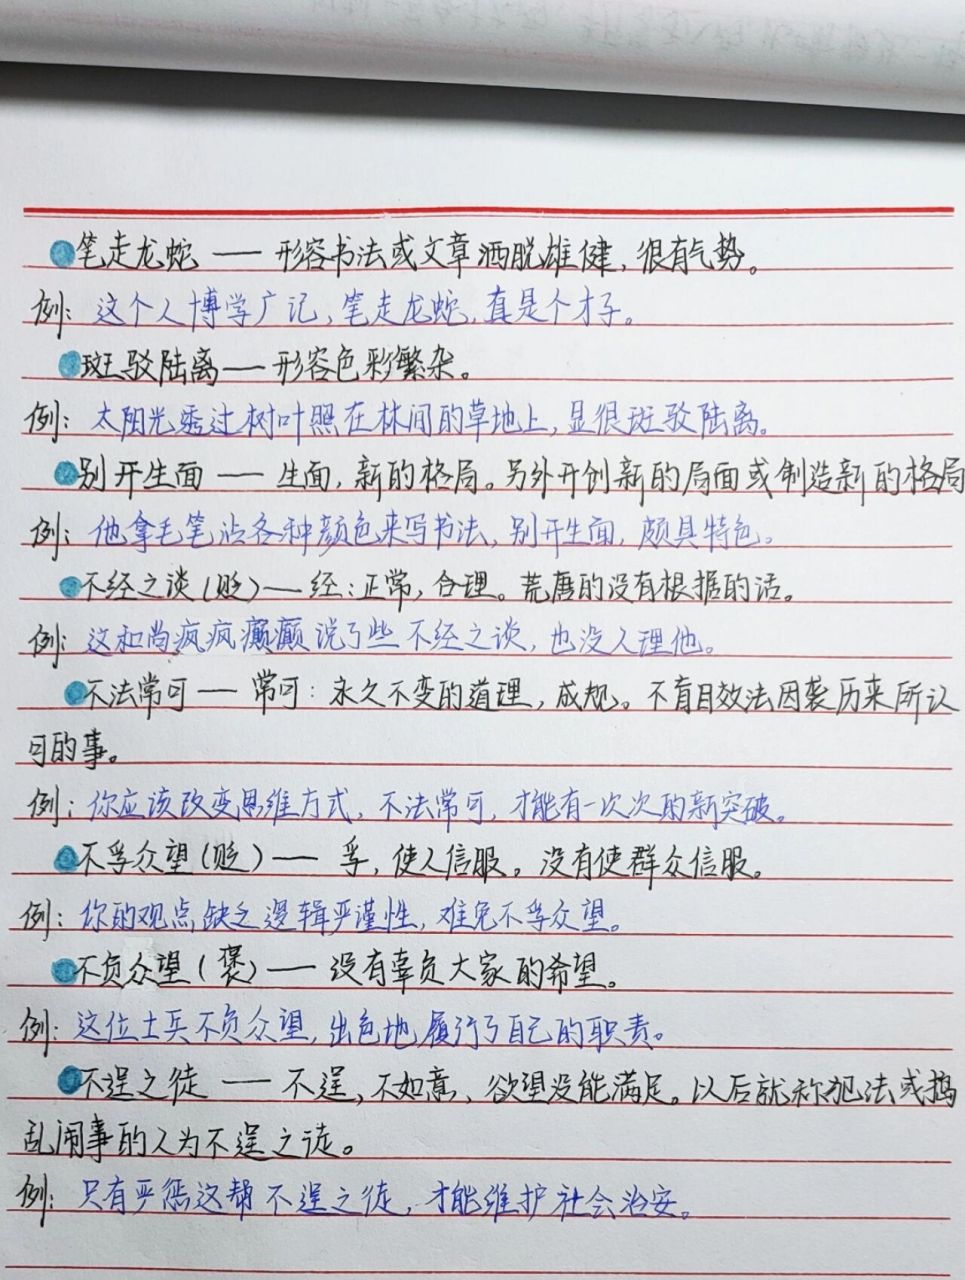 笔走龙蛇 — 形容书法或文章洒脱雄健，很有气势。
例：这个人博学广记，笔走龙蛇，真是个才子。
斑驳陆离 — 形容色彩繁杂。
例：太阳光透过树叶照在林间的草地上，显很斑驳陆离。
别开生面 — 生面，新的格局。另外开创新的局面或制造新的格局
例：他拿毛笔沾各种颜色来写书法，别开生面，颇具特色。
不经之谈（贬）— 经：正常，合理。荒唐的没有根据的话。
例：这和尚疯疯癫癫说了些不经之谈，也没人理他。
不法常可 — 常可：永久不变的道理，成规。不盲目效法因袭历来所认
可的事。
例：你应该改变思维方式，不法常可，才能有一次次的新突破。
不孚众望（贬）— 孚，使人信服。没有使群众信服。
例：你的观点缺乏逻辑严谨性，难免不孚众望。
不负众望（褒）— 没有辜负大家的希望。
例：这位士兵不负众望，出色地履行了自己的职责。
不逞之徒 — 不逞，不如意，欲望没能满足。以后就称犯法或捣
乱闹事的人为不逞之徒。
例：只有严惩这帮不逞之徒，才能维护社会治安。